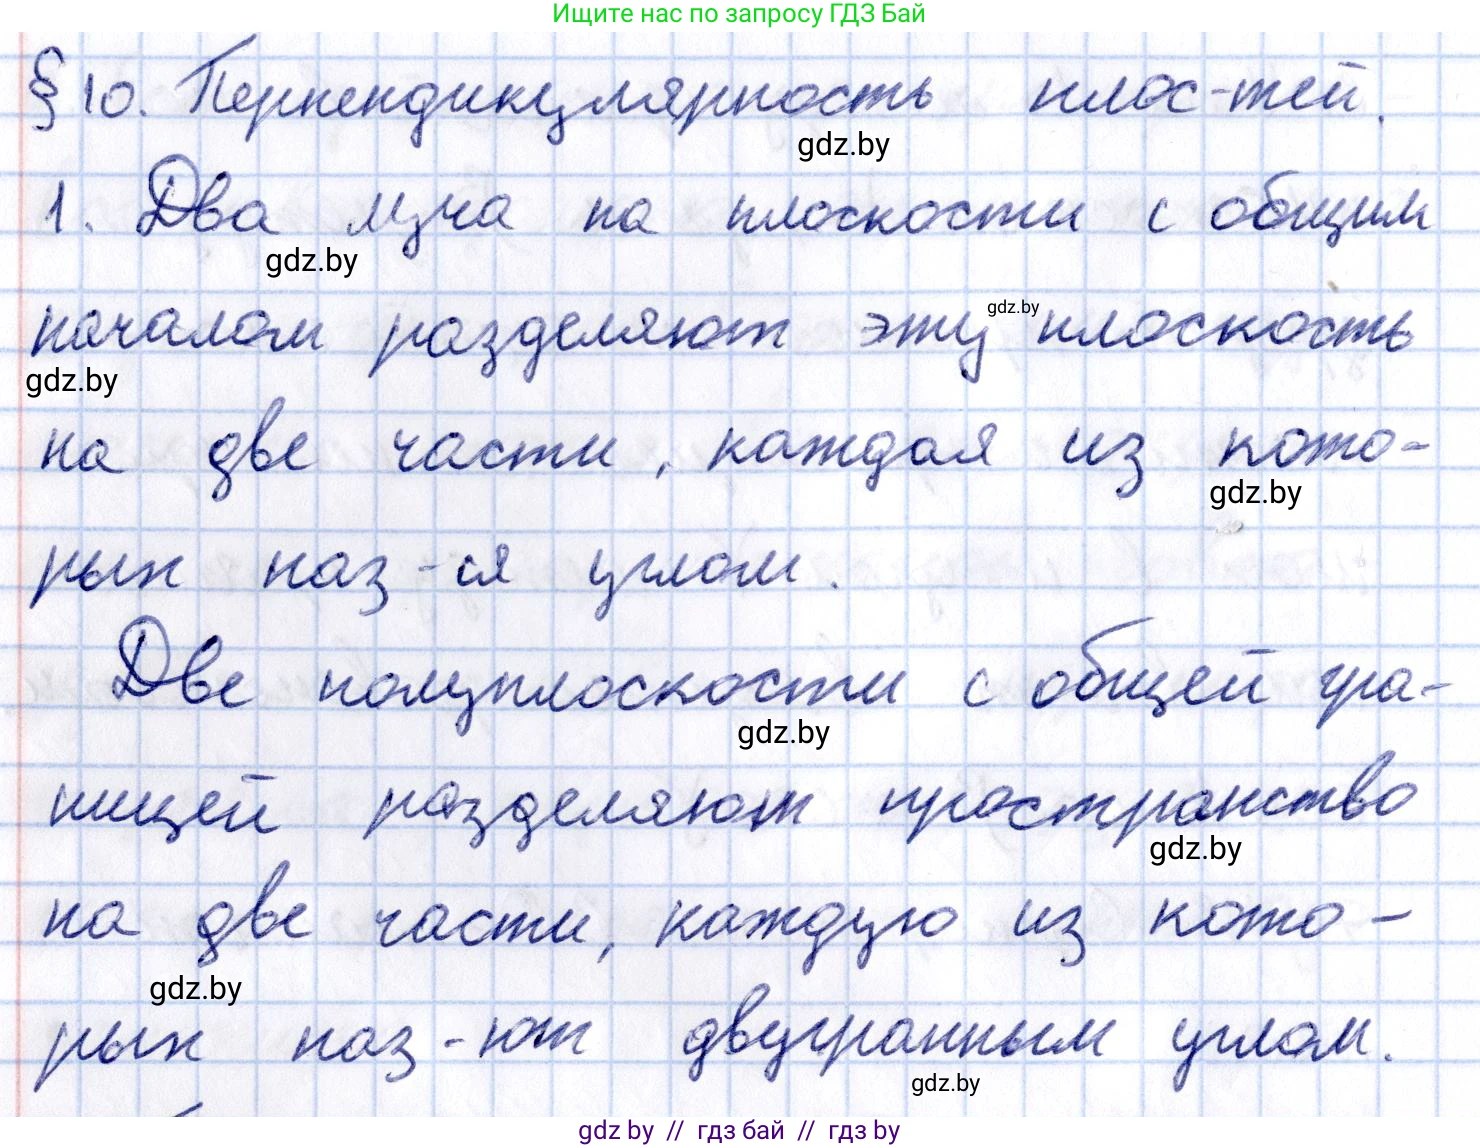 Ищите нас по запросу ГДЗ Бай
§ 10. Перпендикулярность плос-тей.
gdz.by
1. Два луча на плоскости с общим
gdz.by
началом разделяют эту плоскость
gdz.by
gdz.by
на две части, каждая из кото-
gdz.by
рых наз-ся углом.
Две полуплоскости с общей гра-
gdz.by
ницей разделяют пространство
gdz.by
на две части, каждую из кото-
gdz.by
рых наз-ют двугранным углом.
gdz.by
gdz by // гдз бай // гдз by